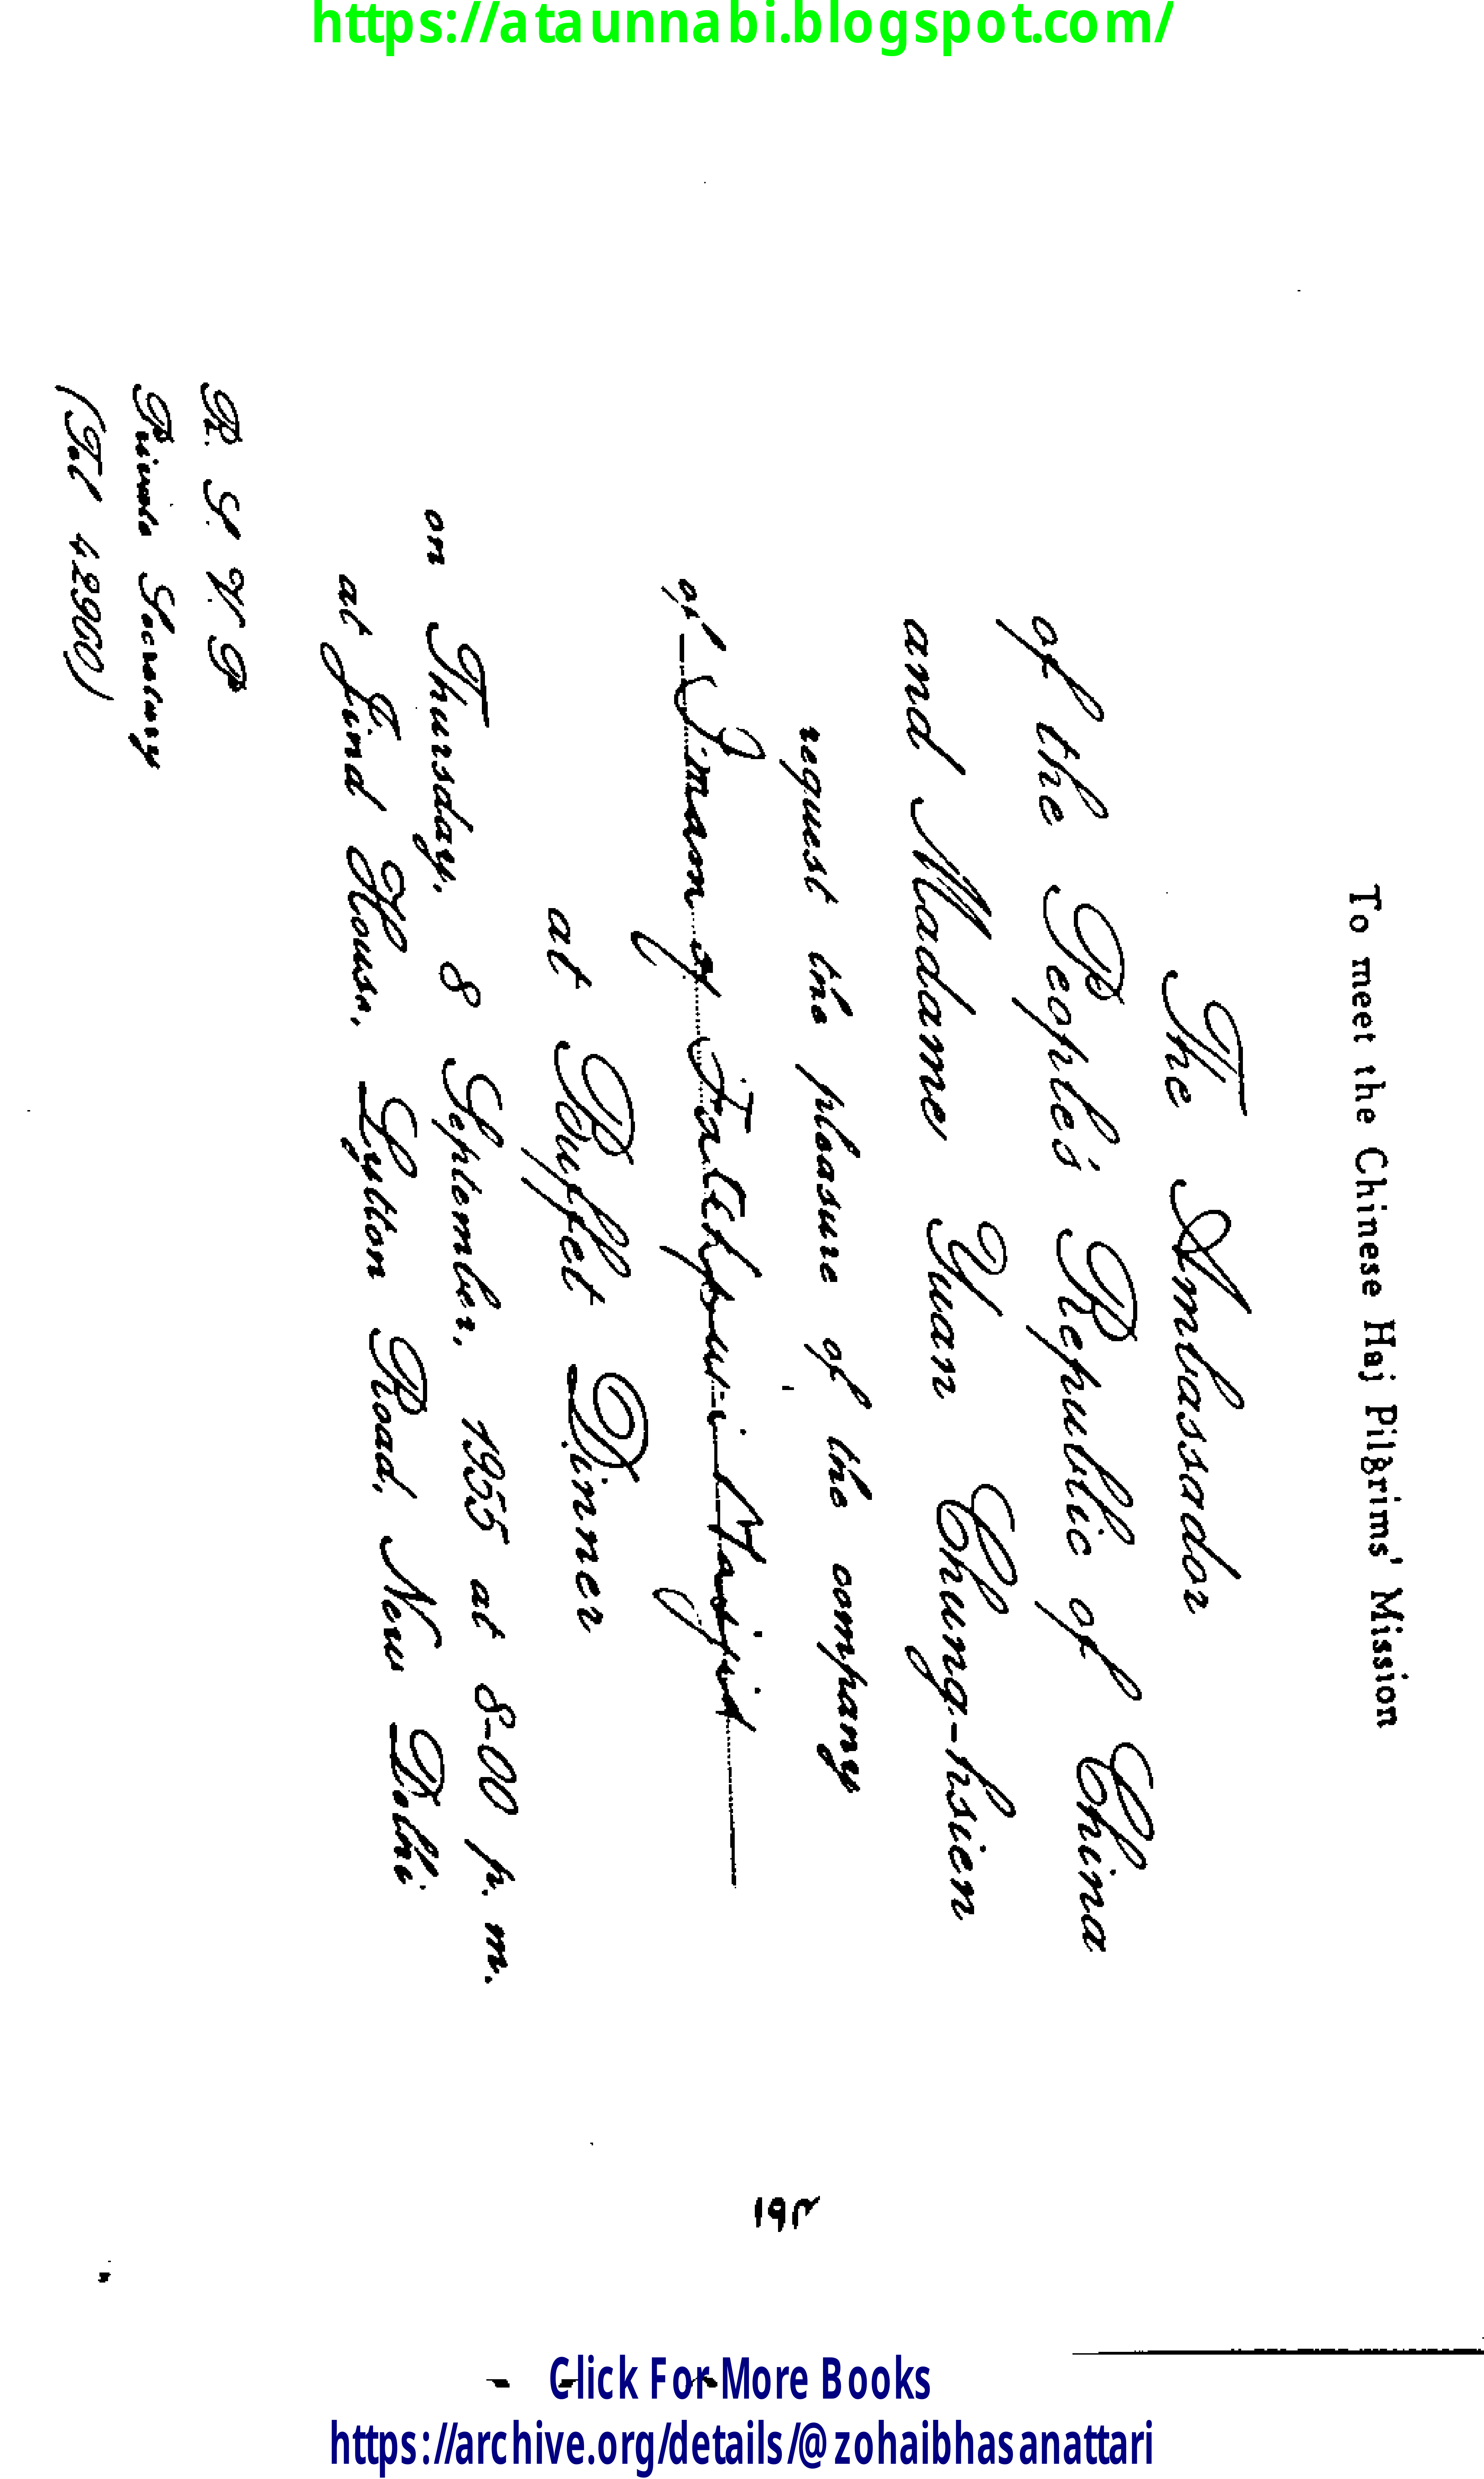 https://ataunnabi.blogspot.com/
To meet the Chinese Haj Pilgrims' Mission
The Ambassador
of the People's Republic of China
and Madame Yuan Chung-hsien
request the pleasure of the company
of Imam of Fatehpuri Masjid
at Buffet Dinner
on Thursday, 8 September, 1955 at 8-00 p. m.
at Jind House, Lytton Road, New Delhi
R. S. V. P
Private Secretary
(Tel 42960)
۱۹۲
Click For More Books
https://archive.org/details/@zohaibhasanattari